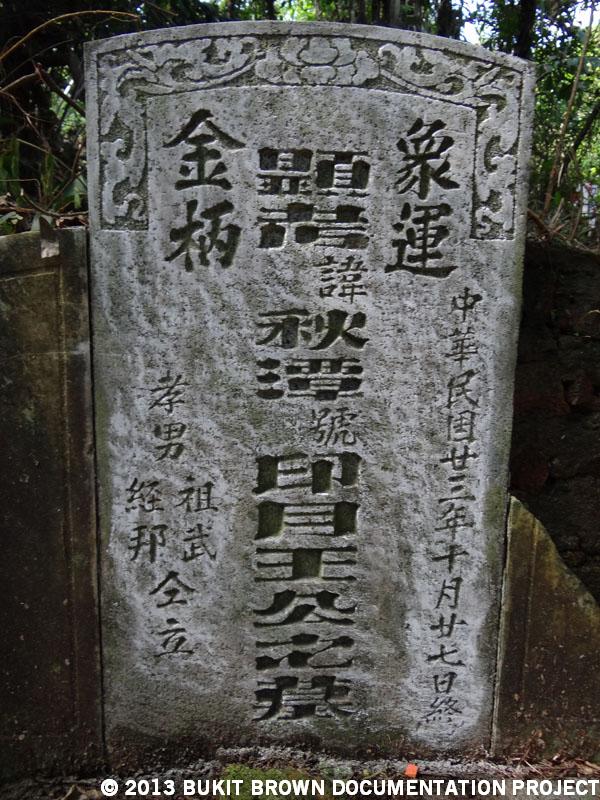 象運
金柄
中華民国廿三年十月廿七日終
顯考諱秋潭號印月王公之墓
孝男
祖武
経邦
仝立
© 2013 BUKIT BROWN DOCUMENTATION PROJECT